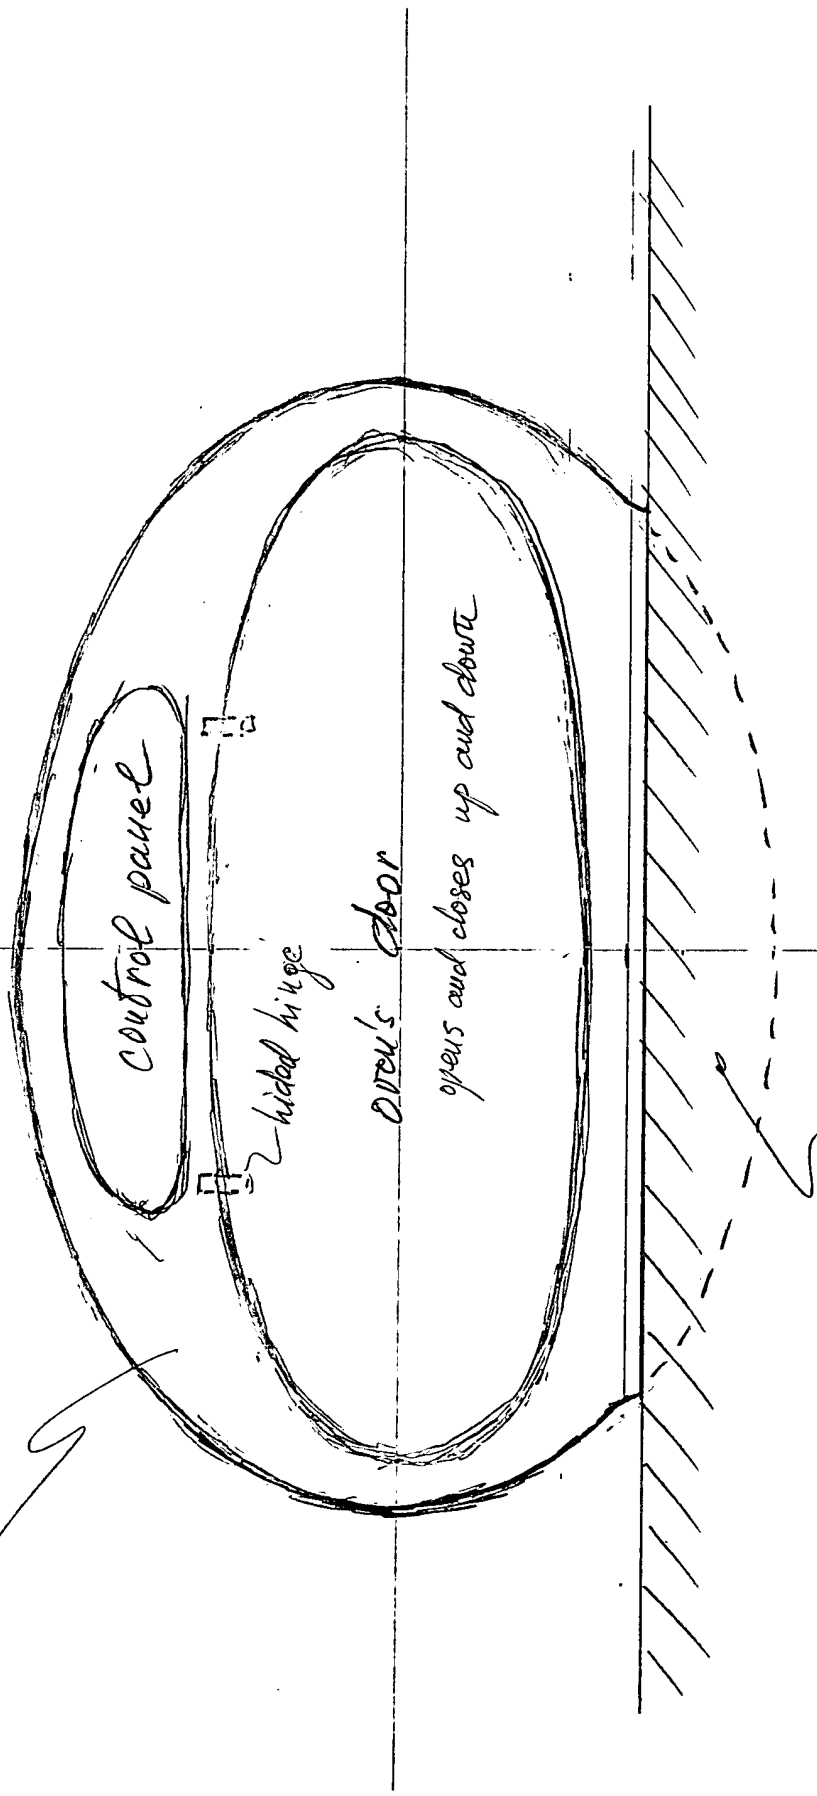 control panel
hided hinge
oven's door
opens and closes up and down